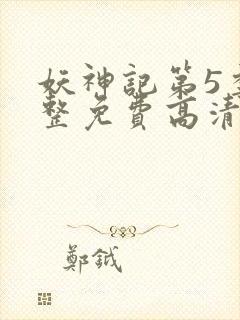 妖神記第5
整免費高清
鄭鉞